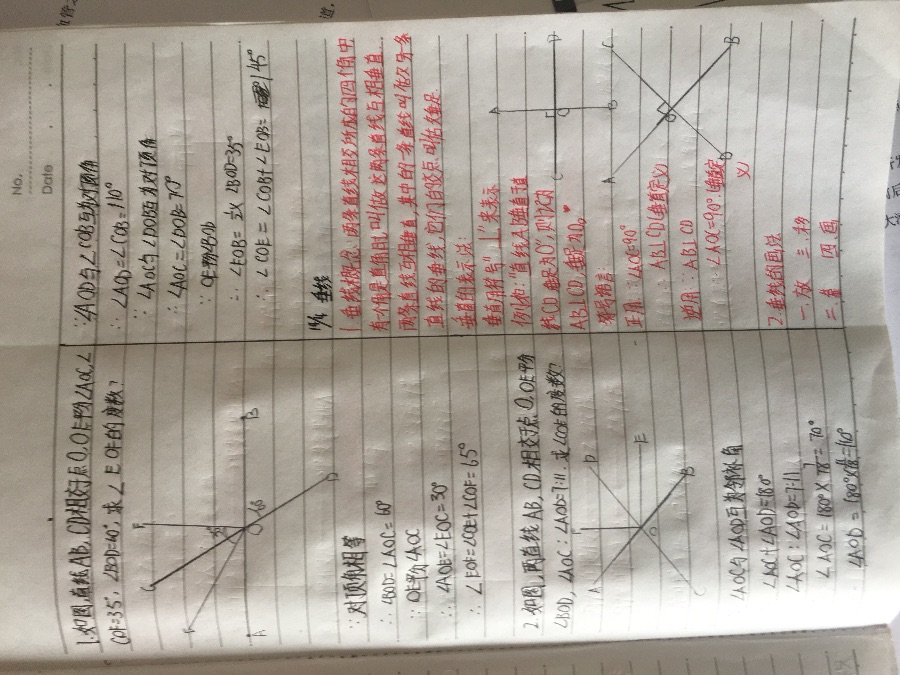 No.
Date
1.如图,直线AB,CD相交于点O,OE平分∠AOC,∠
COF=35°,∠BOD=60°,求∠EOF的度数?
F
C
E
35°
O
60°
A
B
D
∵对顶角相等
∴∠BOD=∠AOC=60°
∵OE平分∠AOC
∴∠AOE=∠EOC=30°
∴∠EOF=∠COE+∠COF=65°
2.如图,两直线AB,CD相交于点O,OE平分
∠BOD,∠AOC:∠AOD=7:11.求∠COE的度数?
F
D
A
E
O
C
B
∠AOC与∠AOD互为邻补角
∠AOC+∠AOD=180°
∠AOC:∠AOD=7:11
∠AOC=180°×7/18=70°
∠AOD=180°×11/18=110°
∵∠AOD与∠COB互为对顶角
∴∠AOD=∠COB=110°
∵∠AOC与∠DOB互为对顶角
∴∠AOC=∠DOB=70°
∵OE平分∠BOD
∴∠EOB=½∠BOD=35°
∴∠COE=∠COB+∠EOB=145°
垂线
1.垂线概念:两条直线相交所成的四个角中
有一个角是直角时,叫做这两条直线互相垂直
两条直线互相垂直,其中的一条直线叫做另一条
直线的垂线,它们的交点叫做垂足
垂直的表示法:
垂直用符号"⊥"来表示
例如:"直线AB垂直于直
线CD,垂足为O",则记为
AB⊥CD,垂足为O。
A
C
O
D
B
符号语言:
正用:∵∠AOC=90°
∴AB⊥CD(垂直定义)
逆用:∵AB⊥CD
∴∠AOC=90°(垂直定
义
A
C
O
D
B
2.垂线的画法
一放 三移
二靠 四画